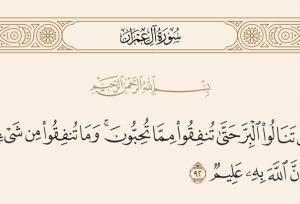 سُورَةُ آلِ عِمْرَانَ
بِسْمِ اللَّهِ الرَّحْمَٰنِ الرَّحِيمِ
تَنَالُوا۟ ٱلْبِرَّ حَتَّىٰ تُنفِقُوا۟ مِمَّا تُحِبُّونَ ۚ وَمَا تُنفِقُوا۟ مِن شَىْءٍ
ٱللَّهَ بِهِۦ عَلِيمٌ ٩٢